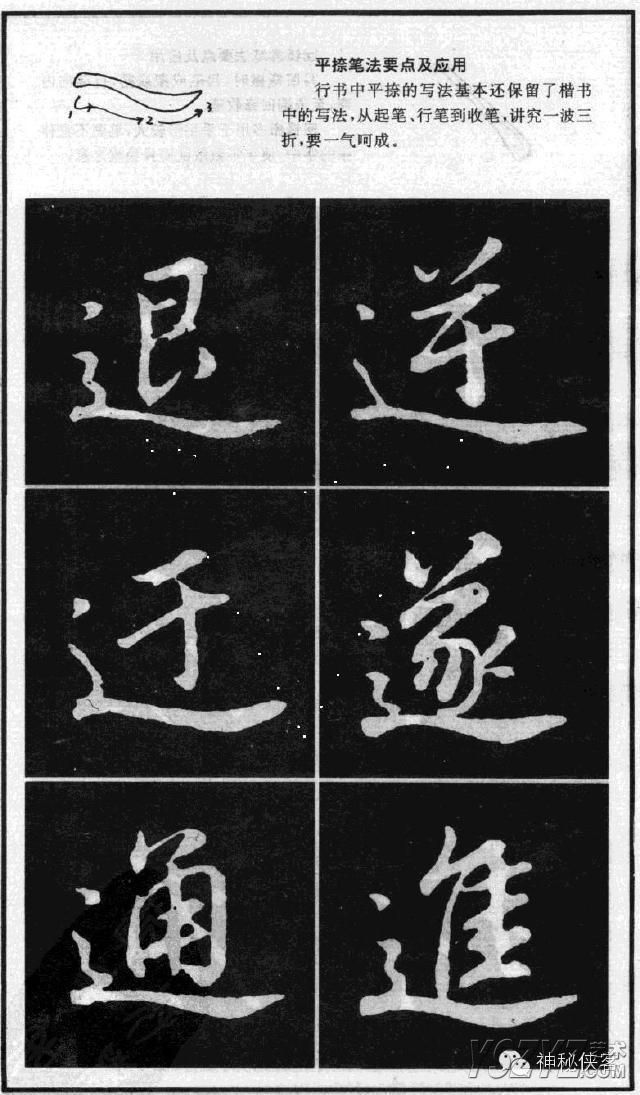 平捺笔法要点及应用
行书中平捺的写法基本还保留了楷书
中的写法,从起笔、行笔到收笔,讲究一波三
折,要一气呵成。
1 2 3
退 逆
迂 遂
通 進
神秘侠客